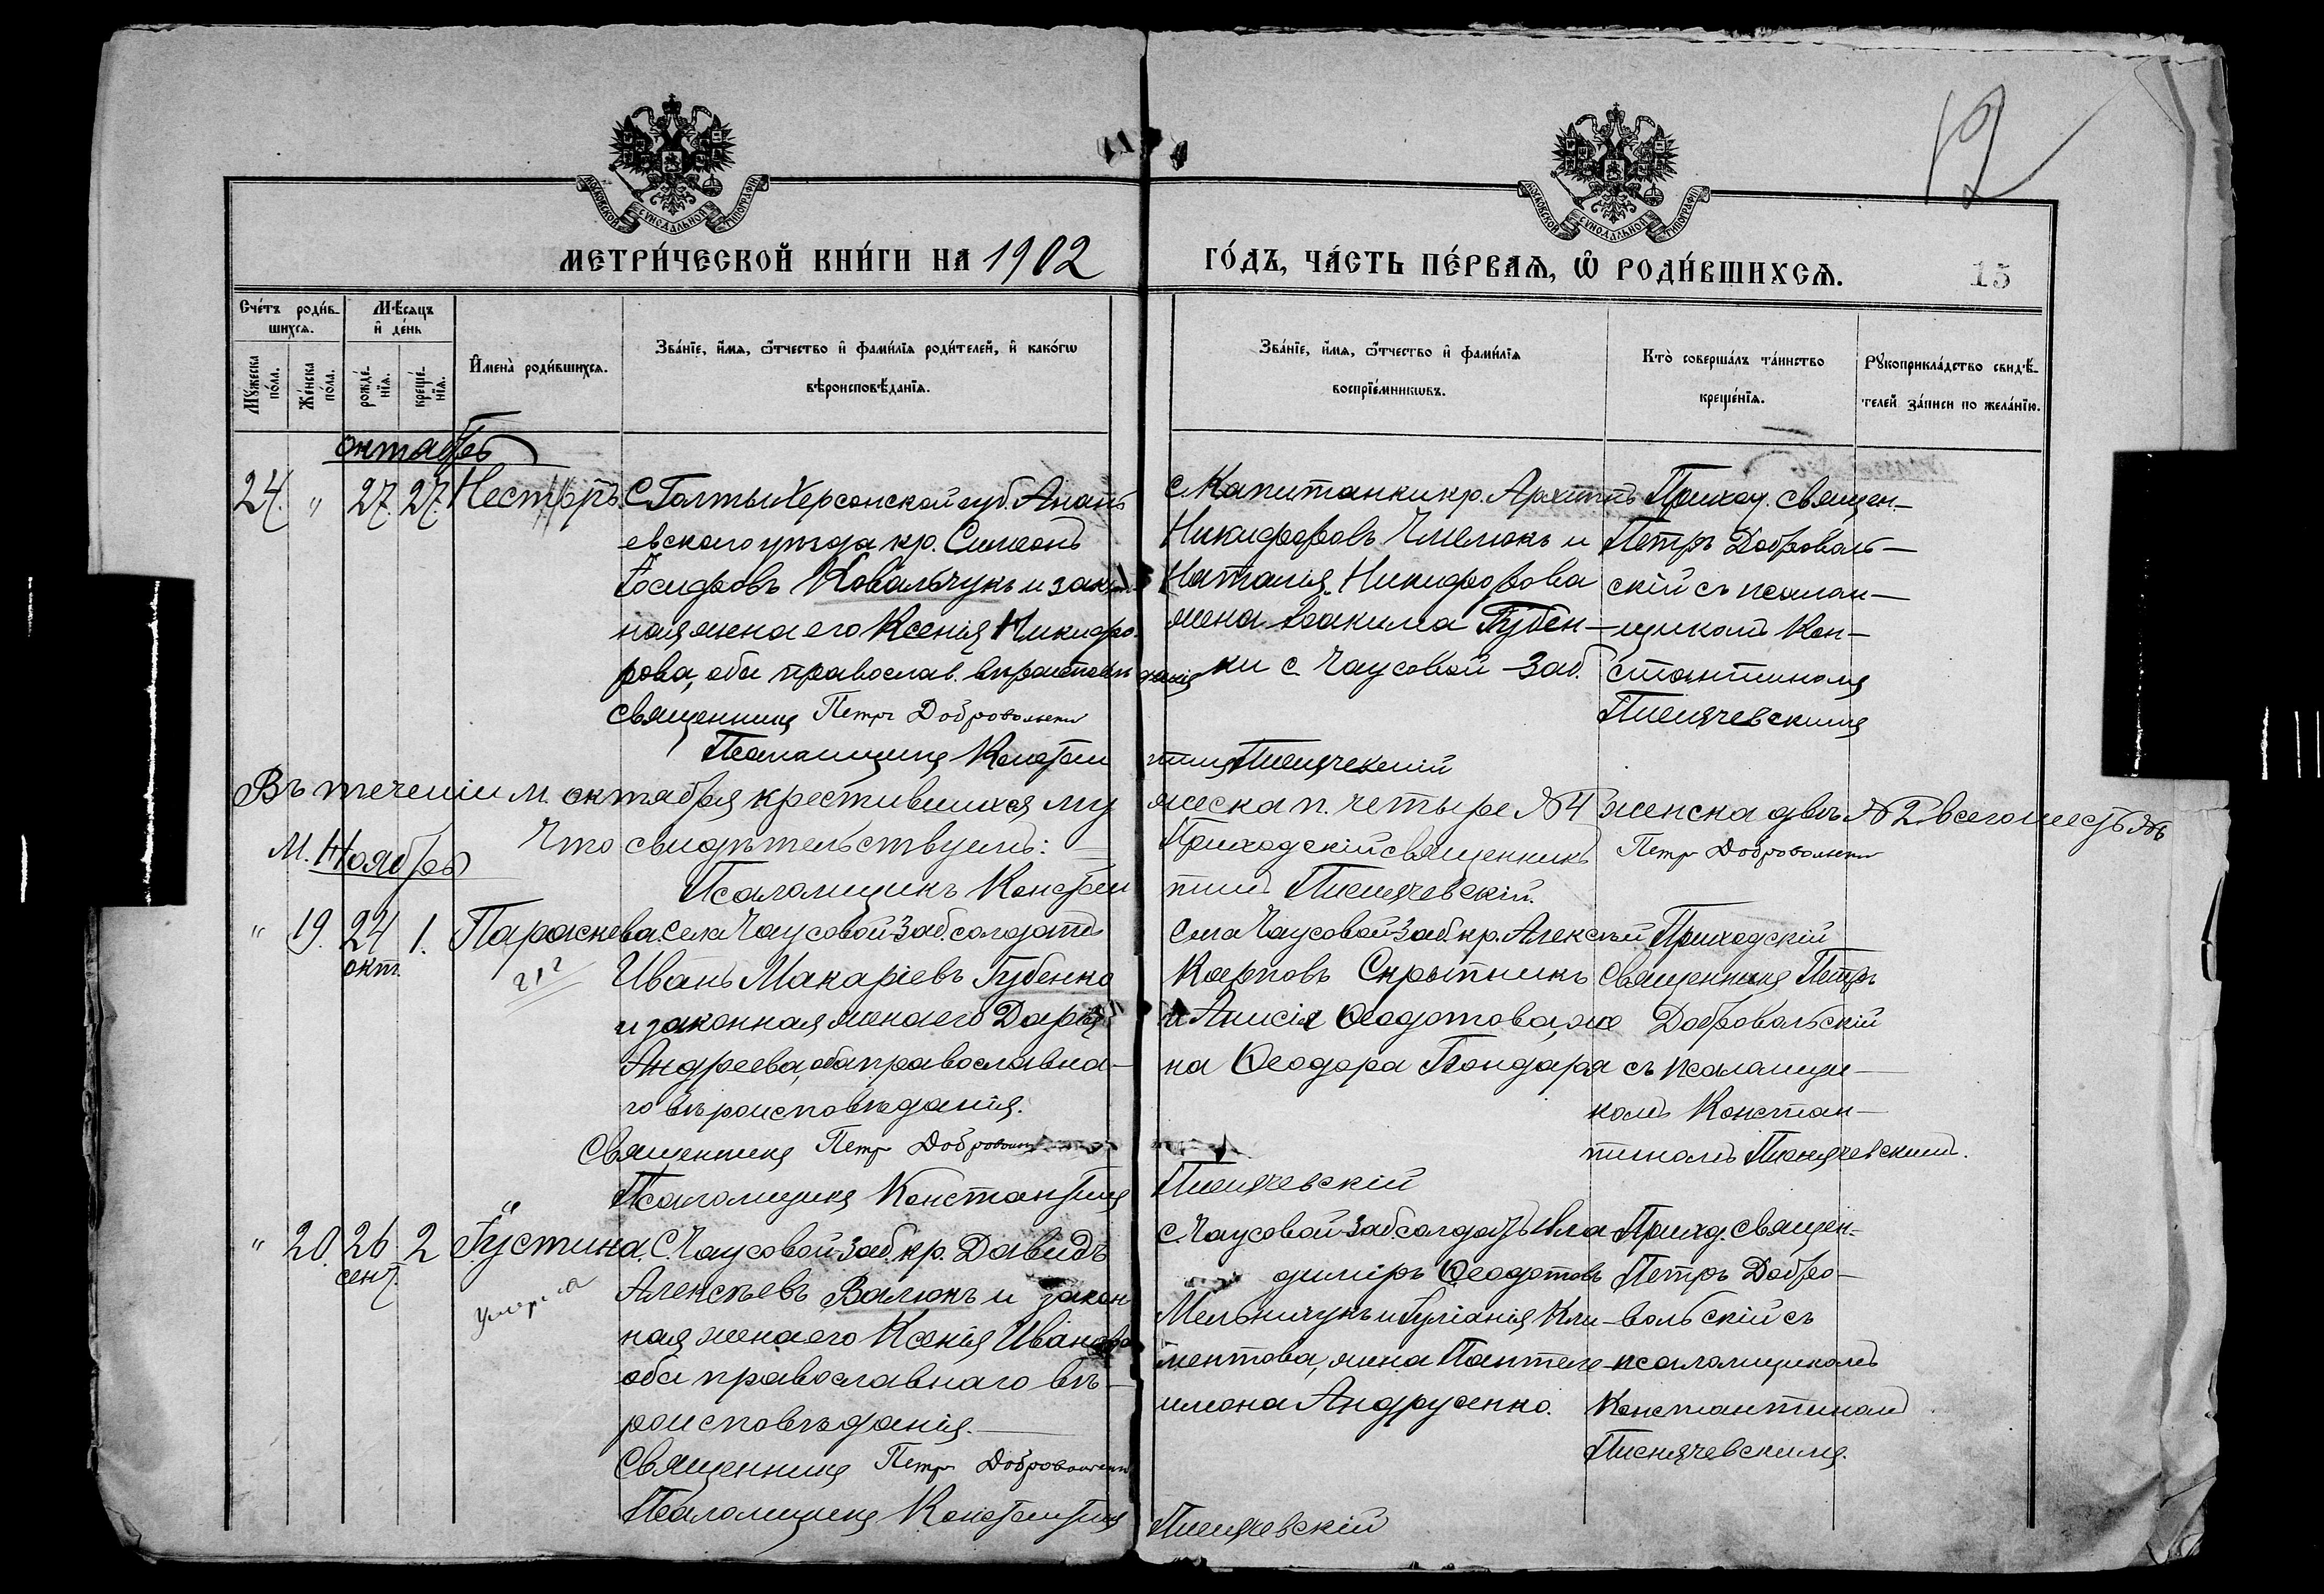 12
МОСКОВСКОЙ СѴНОДАЛЬНОЙ ТИПОГРАФІИ
МОСКОВСКОЙ СѴНОДАЛЬНОЙ ТИПОГРАФІИ
МЕТРИ́ЧЕСКОЙ КНИ́ГИ НА 1902
ГО́ДЪ, ЧА́СТЬ ПЕ́РВАѦ, Ѡ҆ РОДИ́ВШИХСѦ.
15
Сче́тъ роди́в-
шихсѧ.
Мꙋ́жеска по́ла.
Же́нска по́ла.
Мѣ́сѧцъ
и҆ де́нь
рожде́-
нїѧ.
креще́-
нїѧ.
И҆мена̀ роди́вшихсѧ.
Зва́нїе, и҆́мѧ, ѻ҆́тчество и҆ фами́лїѧ роди́телей, и҆ како́гѡ
вѣроисповѣ́данїѧ.
Зва́нїе, и҆́мѧ, ѻ҆́тчество и҆ фами́лїѧ
воспрїе́мникѡвъ.
Кто̀ соверша́лъ та́инство
креще́нїѧ.
Рꙋкоприкла́дство свидѣ́-
телей за́писи по жела́нїю.
октябрь
24. " 27. 27. Несторъ.
С. Голты Херсонской губ. Анань
евскаго уѣзда кр. Симеонъ
Іосифовъ Ковальчукъ и закон
ная жена его Ксенія Никифо-
рова, оба православ. вѣроисповѣданія
Священникъ Петръ Добровольскій
Псаломщикъ Констан
тинъ Писнячевскій
с. Капитанки кр. Архипъ
Никифоровъ Чмелюкъ и
Наталія Никифорова
жена Іоакима Губен-
ки с. Чаусовой-Заб.
Приход. священ-
Петръ Доброволь-
скій съ псалом-
щикомъ Кон-
стантиномъ
Писнячевскимъ
Въ теченіи м. октября крестившихся му
жеска п. четыре №4 женска двѣ №2 всего шесть №6
Что свидѣтельствуемъ:
Приходскій священникъ Петръ Добровольскій
Псаломщикъ Констан
тинъ Писнячевскій.
М. Ноябрь
" 19. 24 окт. 1. Параскева.
Села Чаусовой-Заб. солдатъ
Иванъ Макаріевъ Губенко
и законная жена его Дарія
Андреева, оба православна-
го вѣроисповѣданія.
Священникъ Петръ Добровольскій
Псаломщикъ Константинъ
Писнячевскій
Села Чаусовой-Заб. кр. Алексѣй
Карповъ Скрыпникъ
и Анисія Ѳеодотова, же
на Ѳеодора Бондаря
Приходскій
Священникъ Петръ
Добровольскій
съ псаломщи-
комъ Констан-
тиномъ Писнячевскимъ.
" 20. 26 сент. 2 Іустина.
умерла
С. Чаусовой-Заб. кр. Давидъ
Алексѣевъ Валюкъ и закон
ная жена его Ксенія Иванова
оба православнаго вѣ-
роисповѣданія.
Священникъ Петръ Добровольскій
Псаломщикъ Константинъ
Писнячевскій
С. Чаусовой-Заб. солдатъ Вла
диміръ Ѳеодотовъ
Мельничукъ и Іуліанія Кли-
ментова, жена Пантеле
имона Андрусенко.
Приход. священ-
Петръ Добро-
вольскій съ
псаломщикомъ
Константиномъ
Писнячевскимъ.